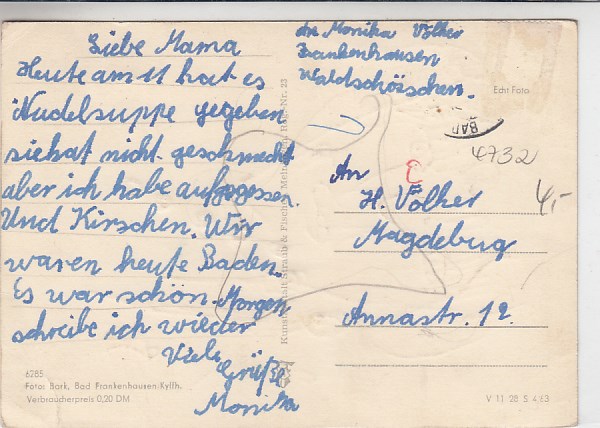 Liebe Mama
Heute am 11 hat es
Nudelsuppe gegeben
sie hat nicht geschmeckt
aber ich habe aufgegessen.
Und Kirschen. Wir
waren heute Baden.
Es war schön. Morgen
schreibe ich wieder
Viele
Grüße
Monika
6285
Foto: Bark, Bad Frankenhausen/Kyffh.
Verbraucherpreis 0,20 DM
Kunstanstalt Straub & Fischer, Meiningen Reg.-Nr. 23
An Monika Völker
Frankenhausen
Waldschösschen.
Echt Foto
BAD
4732
4,-
An
H. Völker
Magdeburg
Annastr. 12.
V 11 28 S 4 63